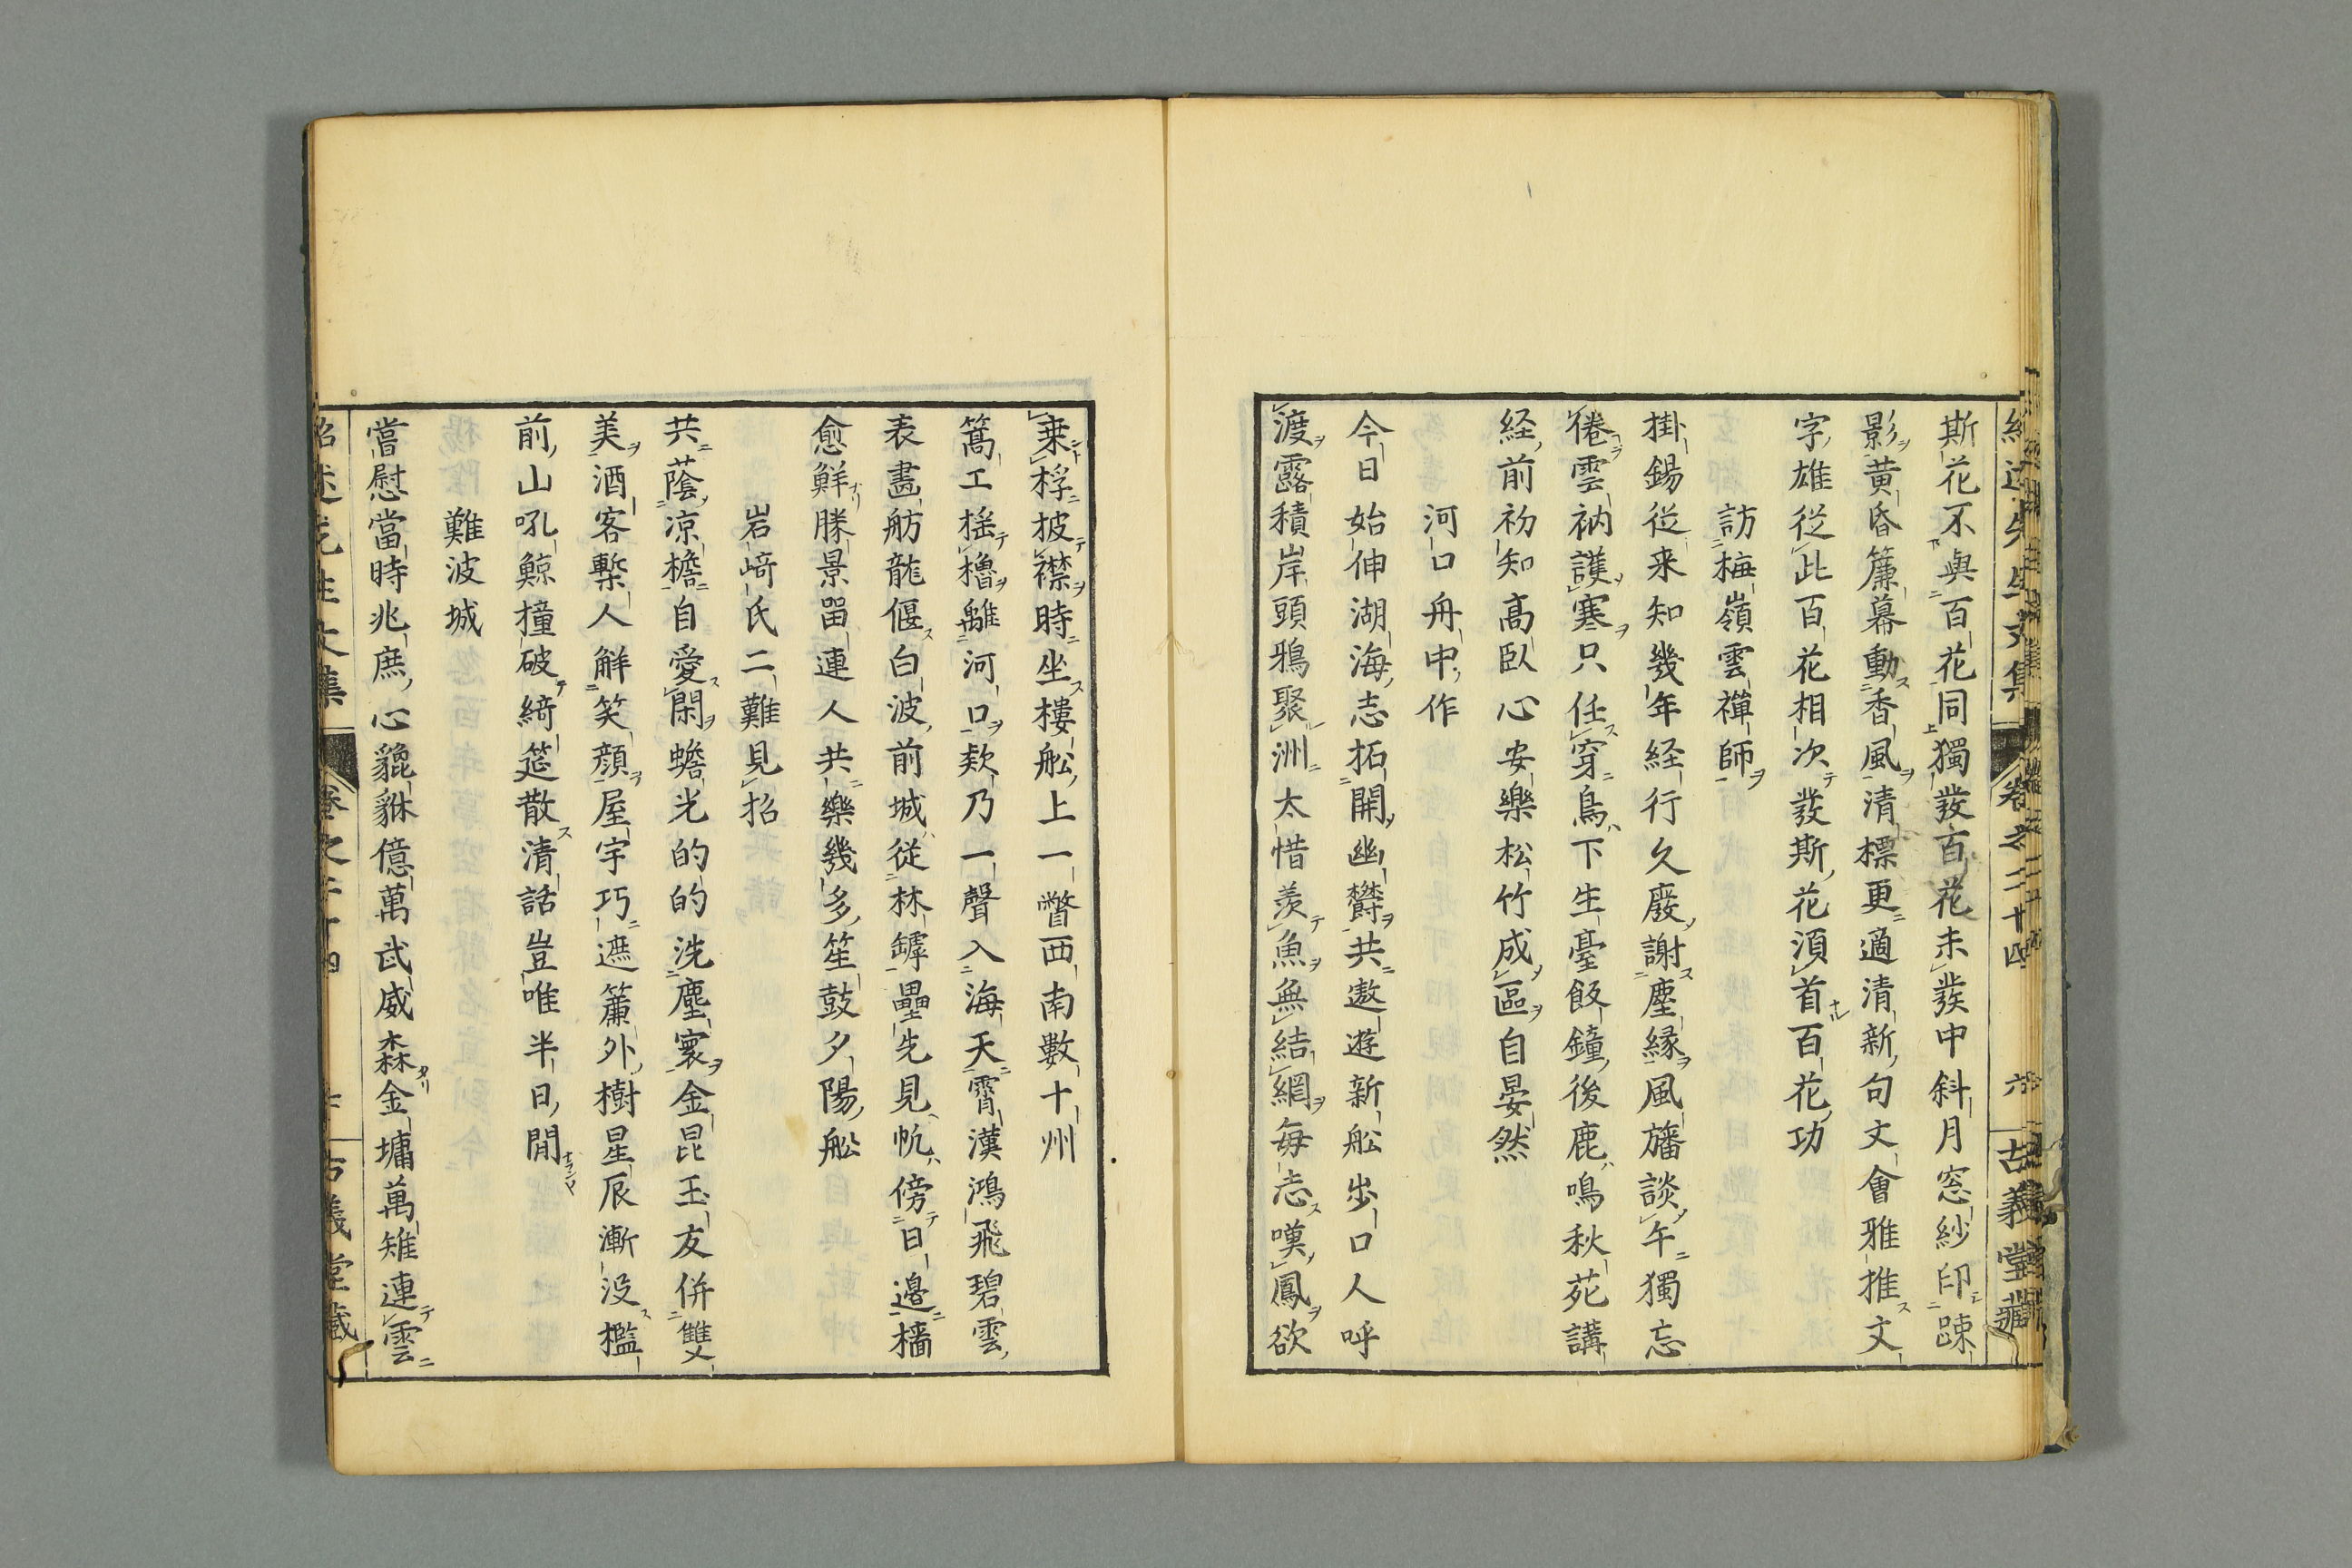 紹述先生文集 卷之二十四 六 古義堂藏
斯花不與百花同獨發百花未發中斜月窓紗印踈
影黄昏簾幕動香風清標更適清新句文會雅推文
字雄從此百花相次發斯花須首百花功
訪梅嶺雲禪師
掛錫從来知幾年経行久廢謝塵縁風旛談午獨忘
倦雲衲護寒只任穿鳥下生臺飯鐘後鹿鳴秋苑講
経前初知高臥心安樂松竹成區自晏然
河口舟中作
今日始伸湖海志拓開幽欝共遨遊新舩出口人呼
渡露積岸頭鴉聚洲太惜羨魚無結網毎志嘆鳳欲
乗桴披襟時坐樓舩上一瞥西南數十州
篙工揺櫓離河口欸乃一聲入海天霄漢鴻飛碧雲
表畫舫龍偃白波前城從林罅壘先見帆傍日邊檣
愈鮮勝景畄連人共樂幾多笙鼓夕陽舩
岩﨑氏二難見招
共蔭凉檐自愛閑蟾光的的洗塵寰金昆玉友併雙
美酒客槧人解笑顔屋宇巧遮簾外樹星辰漸没檻
前山吼鯨撞破綺筵散清話豈唯半日閒
難波城
嘗慰當時兆庶心貔貅億萬武威森金墉萬雉連雲
紹述先生文集 卷之二十四 七 古義堂藏